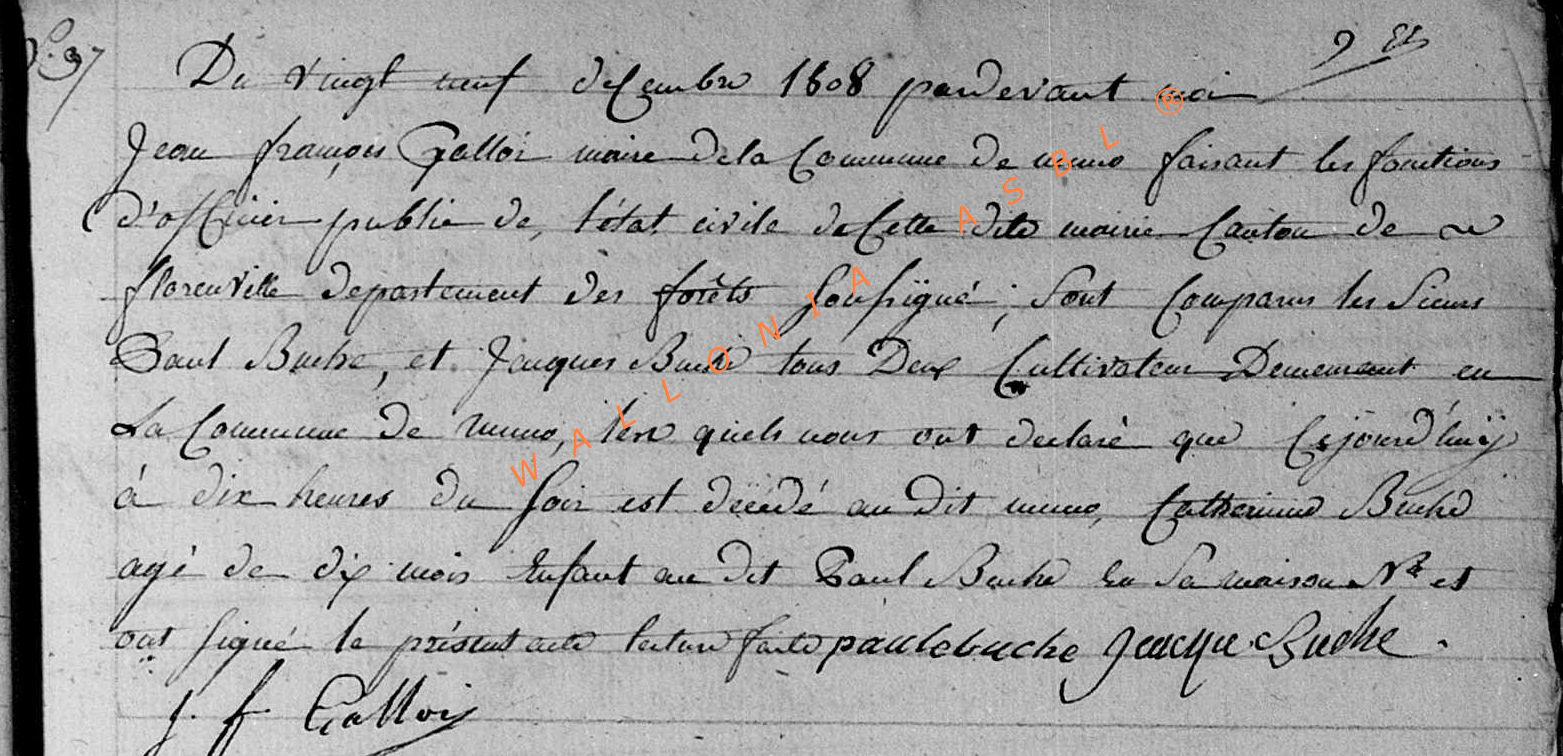 N°. 37
Du vingt neuf decembre 1808 pardevant moi
Jean françois Galloi maire dela Commune de muno faisant les fonctions
d'officier public de, l'état civile de Cette dite mairie Canton de
florenville departement des forêts soussigné; sont Comparus les Sieurs
Paul Buche, et Jacques Buche tous Deux Cultivateur Demeurant en
La Commune de muno, les quels nous ont declaré que Cejourd'huÿ
à dix heures du soir est décédé au dit muno, Catherinne Buche
agé de dix mois Enfant au dit Paul Buche En Sa maison N° et
ont signé le présent acte lecture faite paulebuche Jacque Buche.
J. f. Galloi
WALLONIA ASBL ®